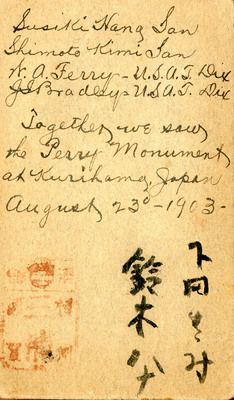 Susiki Hana San
Shimoto Kimi San
N. A. Ferry - U.S.A.T. Dix
J S Bradley - U.S.A.T. Dix
Together we saw
the Perry Monument
at Kurihama, Japan
August 23d - 1903 -
下田きみ
鈴木ハナ